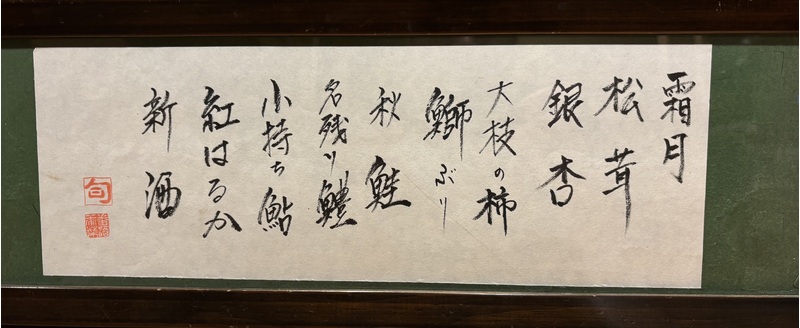 霜月
松茸
銀杏
大枝の柿
鰤ぶり
秋鮭
名残り鱧
小持ち鮎
紅はるか
新酒
旬